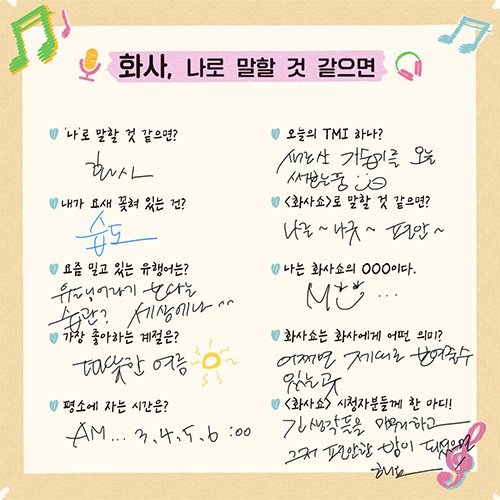 화사, 나로 말할 것 같으면
'나'로 말할 것 같으면?
화사
내가 요새 꽂혀 있는 건?
습도
요즘 밀고 있는 유행어는?
유행어라기 보다는
습관? 세상에나 ^^
가장 좋아하는 계절은?
따뜻한 여름
평소에 자는 시간은?
AM... 3, 4, 5, 6 :00
오늘의 TMI 하나?
새로산 가습기를 오늘
써봤는중
<화사쇼>로 말할 것 같으면?
나른~ 나긋~ 편안~
나는 화사쇼의 OOO이다.
MC ...
화사쇼는 화사에게 어떤 의미?
어쩌면 제대로 보여줄수
있는곳
<화사쇼> 시청자분들께 한 마디!
긴 생각들을 매워하고
그저 편안한 밤이 되셨으면
해요